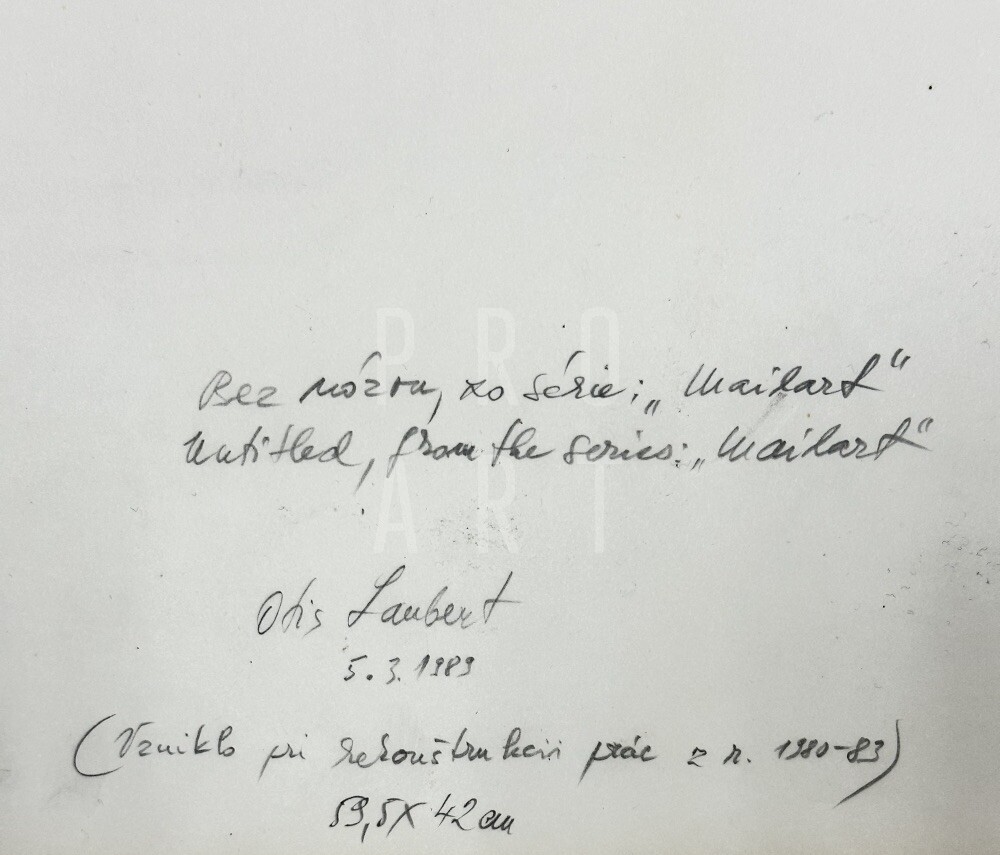 PRO
ART
Bez názvu, zo série: „Mailart“
Untitled, from the series: „Mailart“
Otis Laubert
5. 3. 1989
(Vzniklo pri rekonštrukcii prác z r. 1980-83)
59,5 X 42 cm